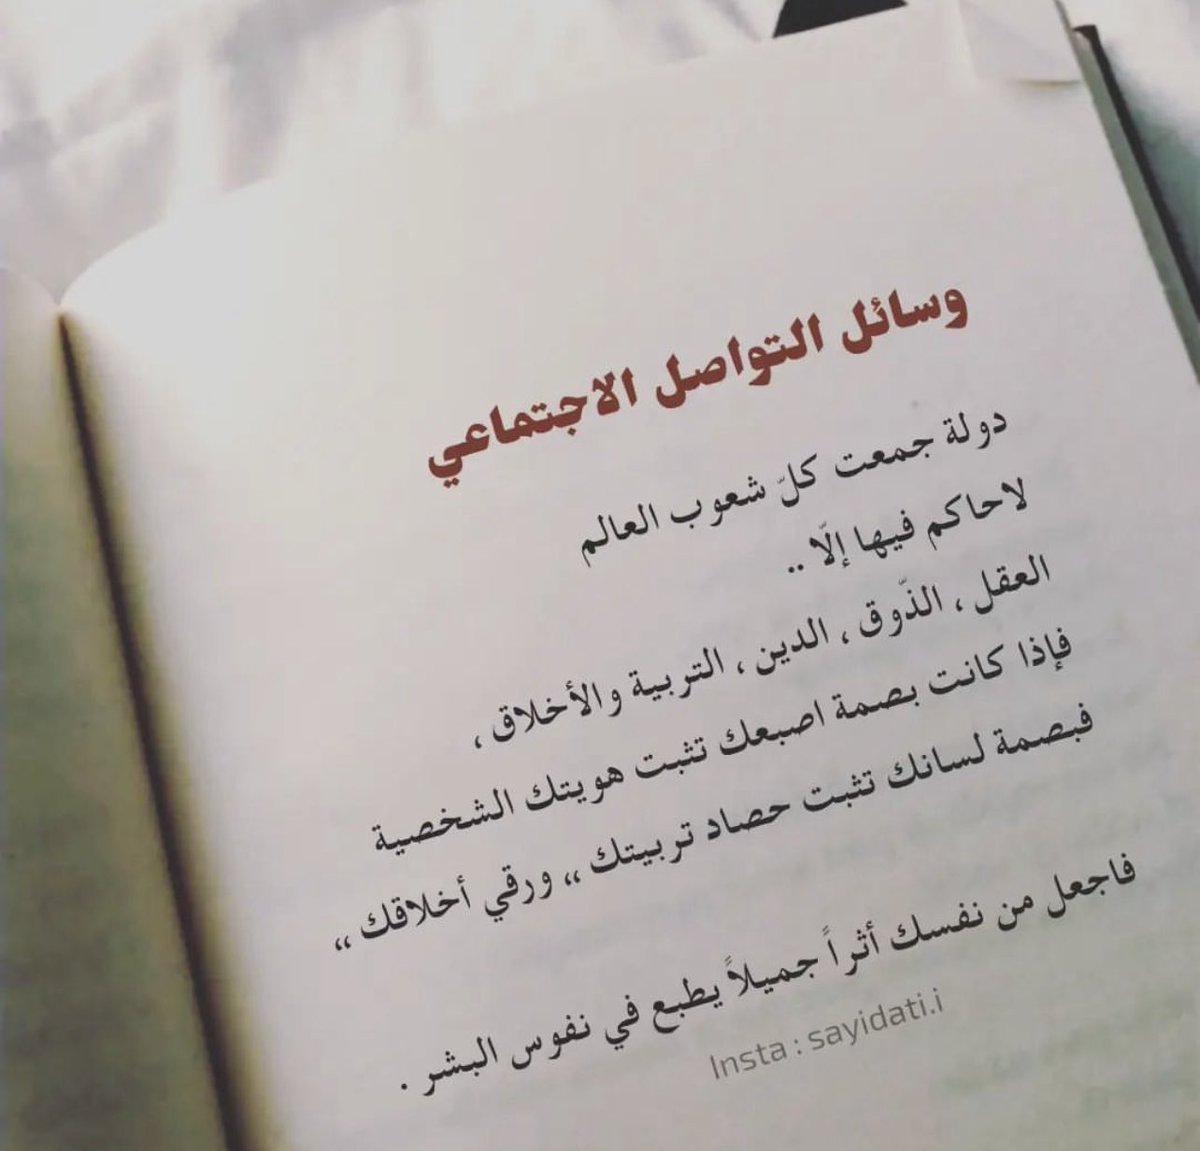 وسائل التواصل الاجتماعي
دولة جمعت كلّ شعوب العالم
لاحاكم فيها إلّا ..
العقل ، الذّوق ، الدين ، التربية والأخلاق ،
فإذا كانت بصمة اصبعك تثبت هويتك الشخصية
فبصمة لسانك تثبت حصاد تربيتك ،، ورقي أخلاقك ،،
فاجعل من نفسك أثراً جميلاً يطبع في نفوس البشر .
Insta : sayidati.i